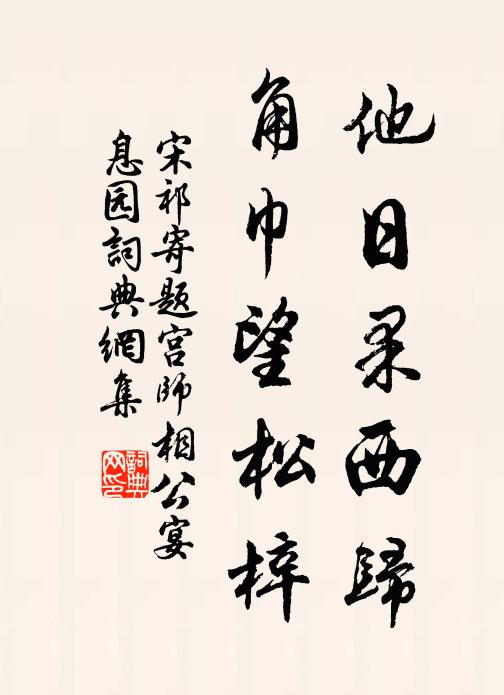 他日果西歸
角巾望松梓
宋祁寄題宮師相公宴
息园詞典網集
詞典网印